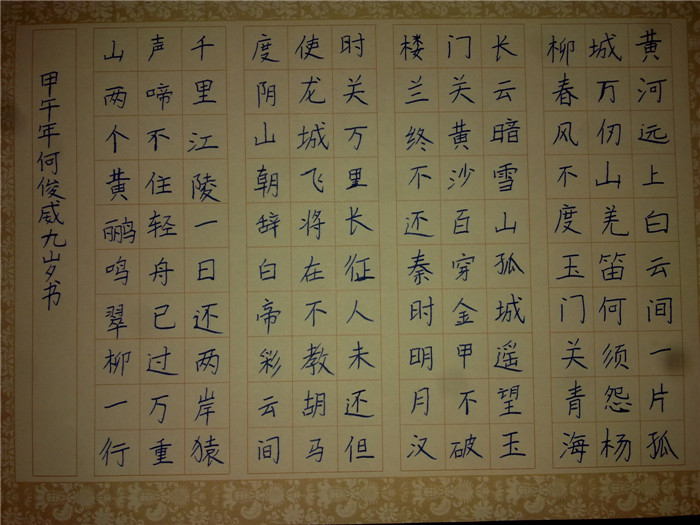 黄河远上白云间一片孤
城万仞山羌笛何须怨杨
柳春风不度玉门关青海
长云暗雪山孤城遥望玉
门关黄沙百穿金甲不破
楼兰终不还秦时明月汉
时关万里长征人未还但
使龙城飞将在不教胡马
度阴山朝辞白帝彩云间
千里江陵一日还两岸猿
声啼不住轻舟已过万重
山两个黄鹂鸣翠柳一行
甲午年何俊威九岁书